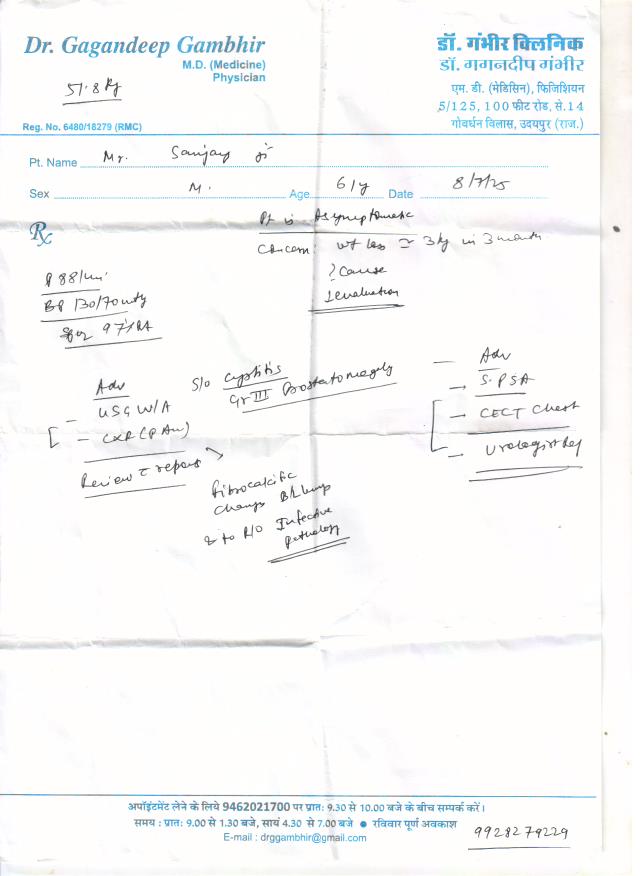 Dr. Gagandeep Gambhir
M.D. (Medicine)
Physician
51.8 Kg
Reg. No. 6480/18279 (RMC)
डॉ. गंभीर क्लिनिक
डॉ. गगनदीप गंभीर
एम. डी. (मेडिसिन), फिजिशियन
5/125, 100 फीट रोड, से.14
गोवर्धन विलास, उदयपुर (राज.)
Pt. Name Mr. Sanjay Ji
Sex M. Age 61y Date 8/7/25
Rx
Pt is Asymptomatic
Concern: wt loss ≃ 3 kg in 3 month
? Cause
? evaluation
P 88/min
BP 130/70 mmHg
97% RA
Adv
- USG W/A
- CXR (PA)
Review c reports
S/o Cystitis
Gr III Prostatomegaly
Fibrocalcific
changes B/L lungs
to R/O Infective
pathology
Adv
→ S. PSA
→ CECT Chest
→ Urologist Ref
अपॉइंटमेंट लेने के लिये 9462021700 पर प्रात: 9.30 से 10.00 बजे के बीच सम्पर्क करें।
समय : प्रात: 9.00 से 1.30 बजे, सायं 4.30 से 7.00 बजे ● रविवार पूर्ण अवकाश
E-mail : drggambhir@gmail.com
9928279229